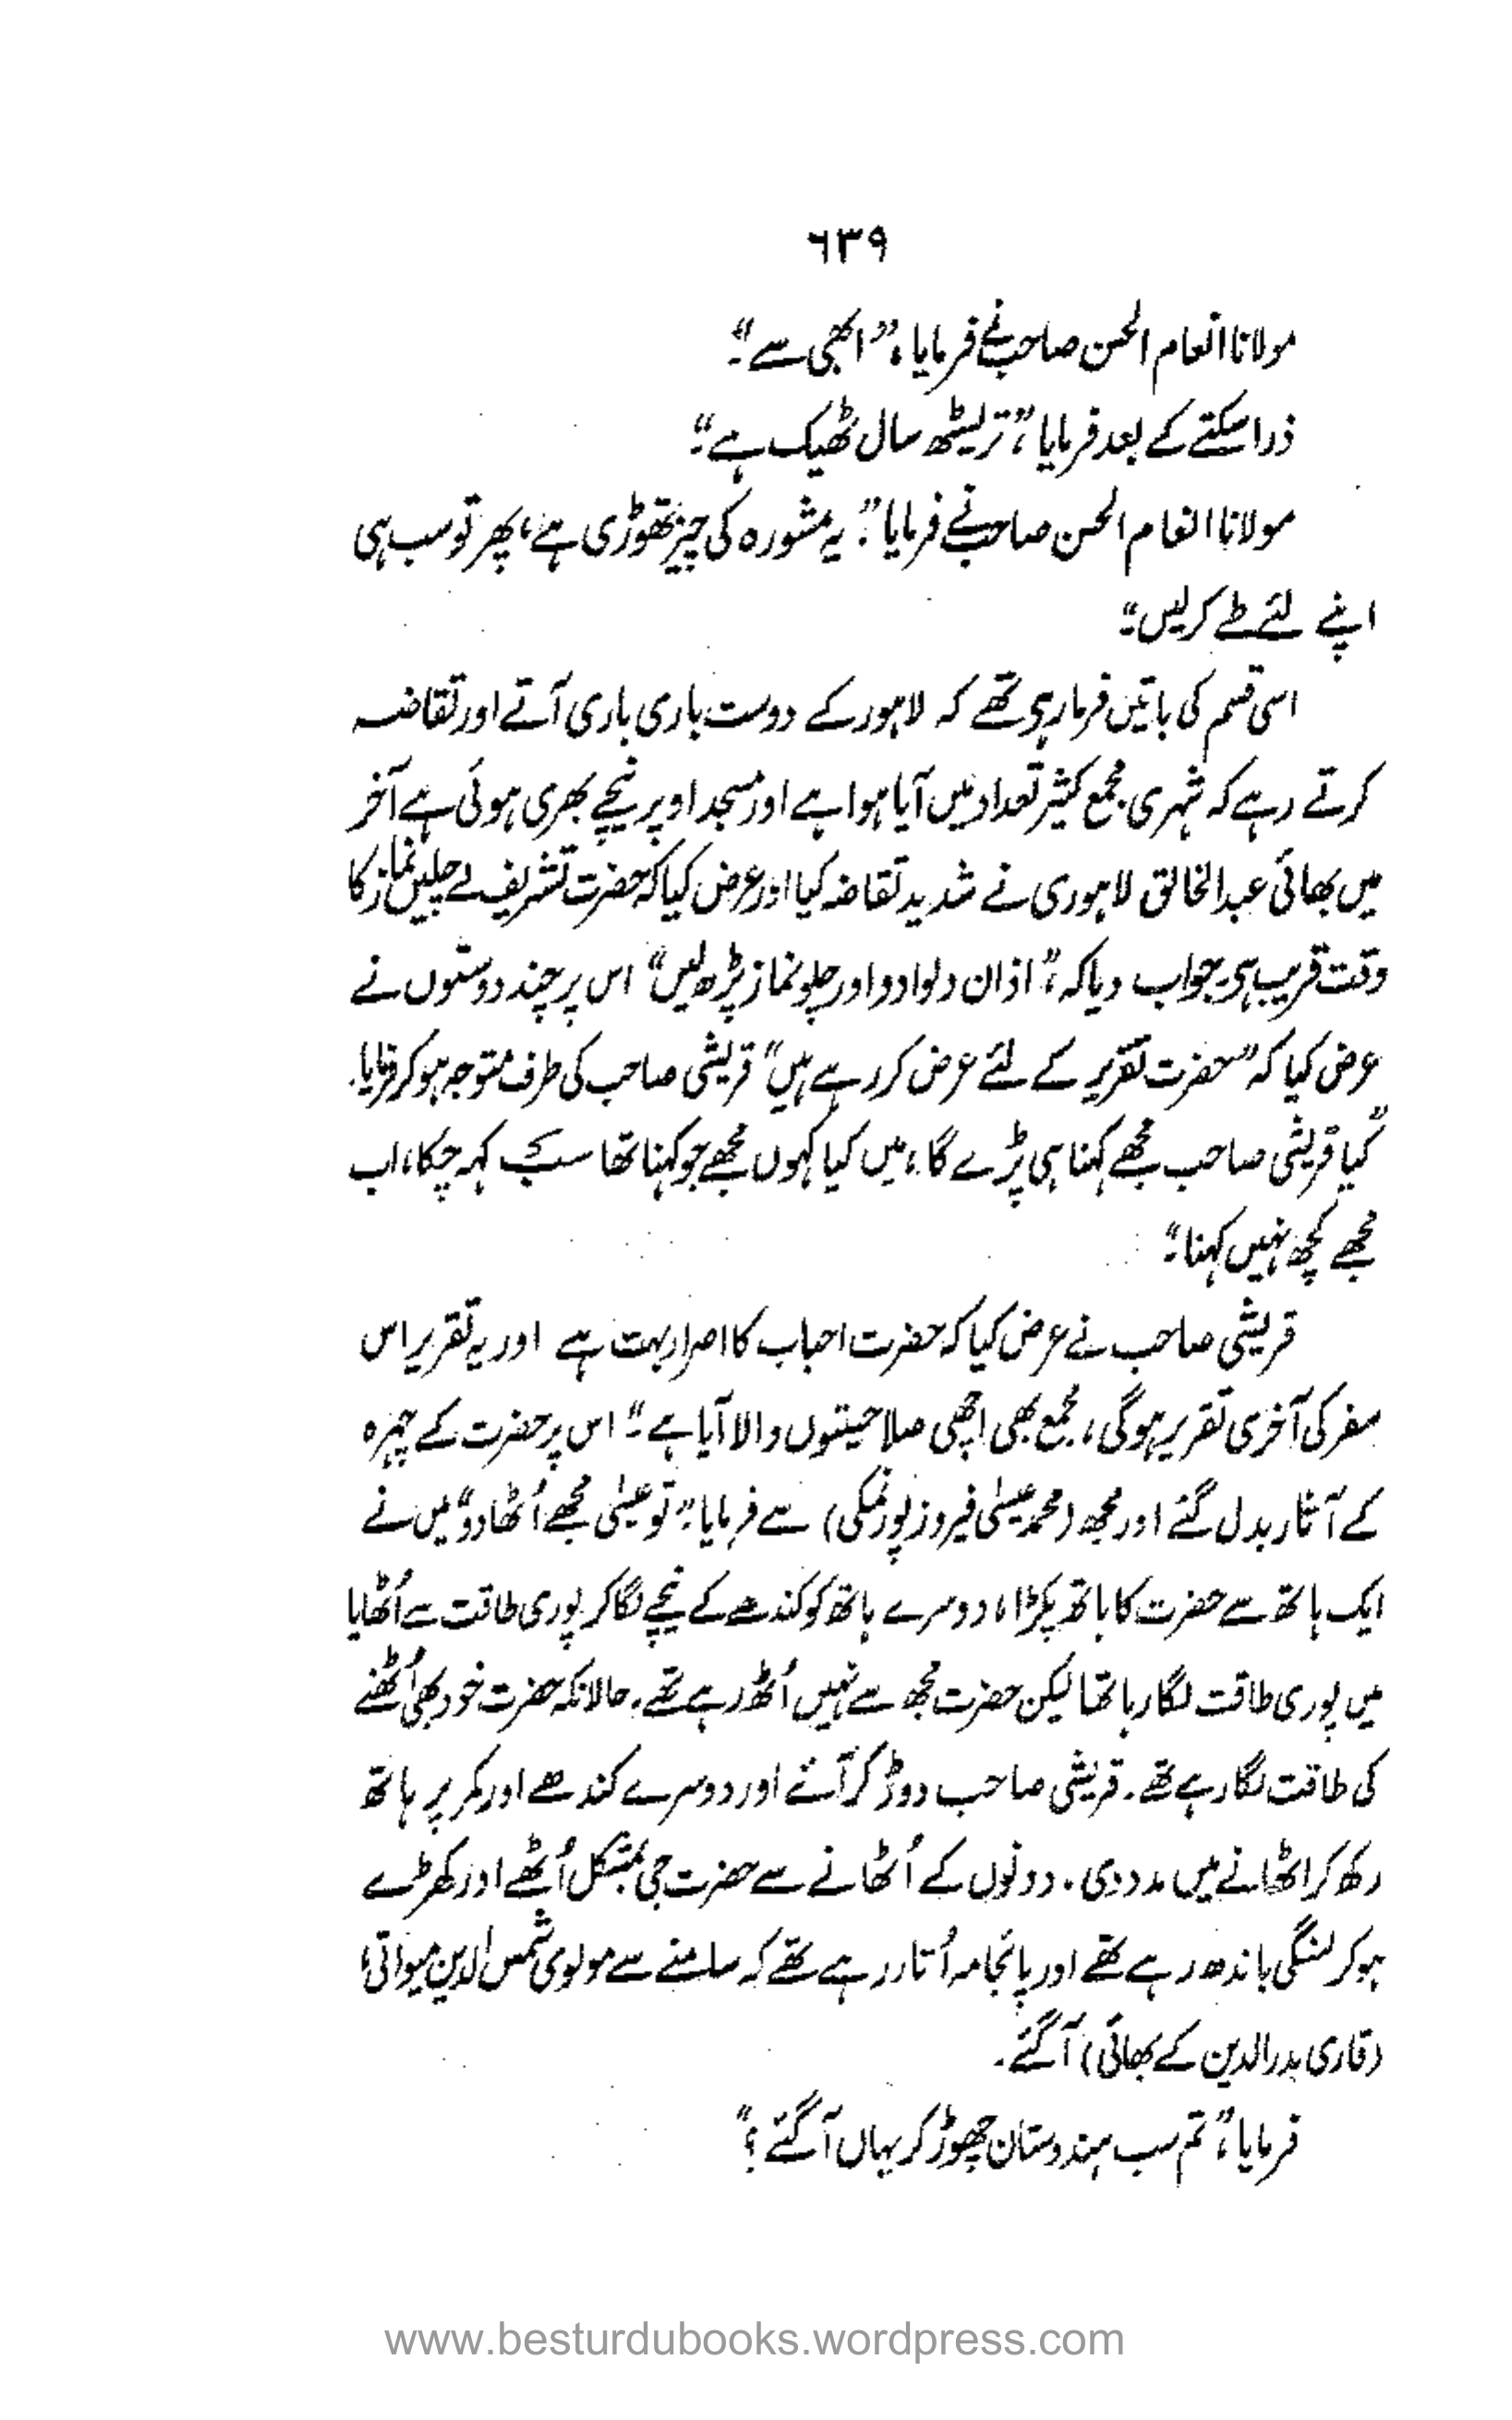 ۶۳۹
مولانا انعام الحسن صاحب نے فرمایا، "ابھی سے"۔
ذرا سکتے کے بعد فرمایا، "تریسٹھ سال ٹھیک ہے"۔
مولانا انعام الحسن صاحب نے فرمایا "یہ مشورہ کی چیز تھوڑی ہے، پھر تو سب ہی
اپنے لئے طے کر لیں"۔
اسی قسم کی باتیں فرما رہے تھے کہ لاہور کے دوست باری باری آتے اور تقاضہ
کرتے رہے کہ شہری مجمع کثیر تعداد میں آیا ہوا ہے اور مسجد اوپر نیچے بھری ہوئی ہے آخر
میں بھائی عبد الخالق لاہوری نے شدید تقاضہ کیا اور عرض کیا کہ حضرت تشریف لے چلیں نماز کا
وقت قریب ہے، جواب دیا کہ، "اذان دلوا دو اور چلو نماز پڑھ لیں" اس پر چند دوستوں نے
عرض کیا کہ "حضرت تقریر کے لئے عرض کر رہے ہیں" قریشی صاحب کی طرف متوجہ ہو کر فرمایا۔
"کیا قریشی صاحب مجھے کہنا ہی پڑے گا، میں کیا کہوں مجھے جو کہنا تھا سب کہہ چکا، اب
مجھے کچھ نہیں کہنا"۔
قریشی صاحب نے عرض کیا کہ حضرت احباب کا اصرار بہت ہے اور یہ تقریر اس
سفر کی آخری تقریر ہو گی، مجمع بھی اچھی صلاحیتوں والا آیا ہے"۔ اس پر حضرت کے چہرہ
کے آثار بدل گئے اور مجھ (محمد عیسیٰ فیروز پور نمکی) سے فرمایا "تو عیسیٰ مجھے اُٹھا دو" میں نے
ایک ہاتھ سے حضرت کا ہاتھ پکڑا، دوسرے ہاتھ کو کندھے کے نیچے لگا کر پوری طاقت سے اُٹھایا
میں پوری طاقت لگا رہا تھا لیکن حضرت مجھ سے نہیں اُٹھ رہے تھے۔ حالانکہ حضرت خود بھی اُٹھنے
کی طاقت لگا رہے تھے۔ قریشی صاحب دوڑ کر آئے اور دوسرے کندھے اور کمر پر ہاتھ
رکھ کر اٹھانے میں مدد دی۔ دونوں کے اُٹھانے سے حضرت جی بمشکل اُٹھے اور کھڑے
ہو کر لنگی باندھ رہے تھے اور پائجامہ اُتار رہے تھے کہ سامنے سے مولوی شمس الدین میواتی
(قاری بدر الدین کے بھائی) آگئے۔
فرمایا، "تم سب ہندوستان چھوڑ کر یہاں آگئے؟"
www.besturdubooks.wordpress.com